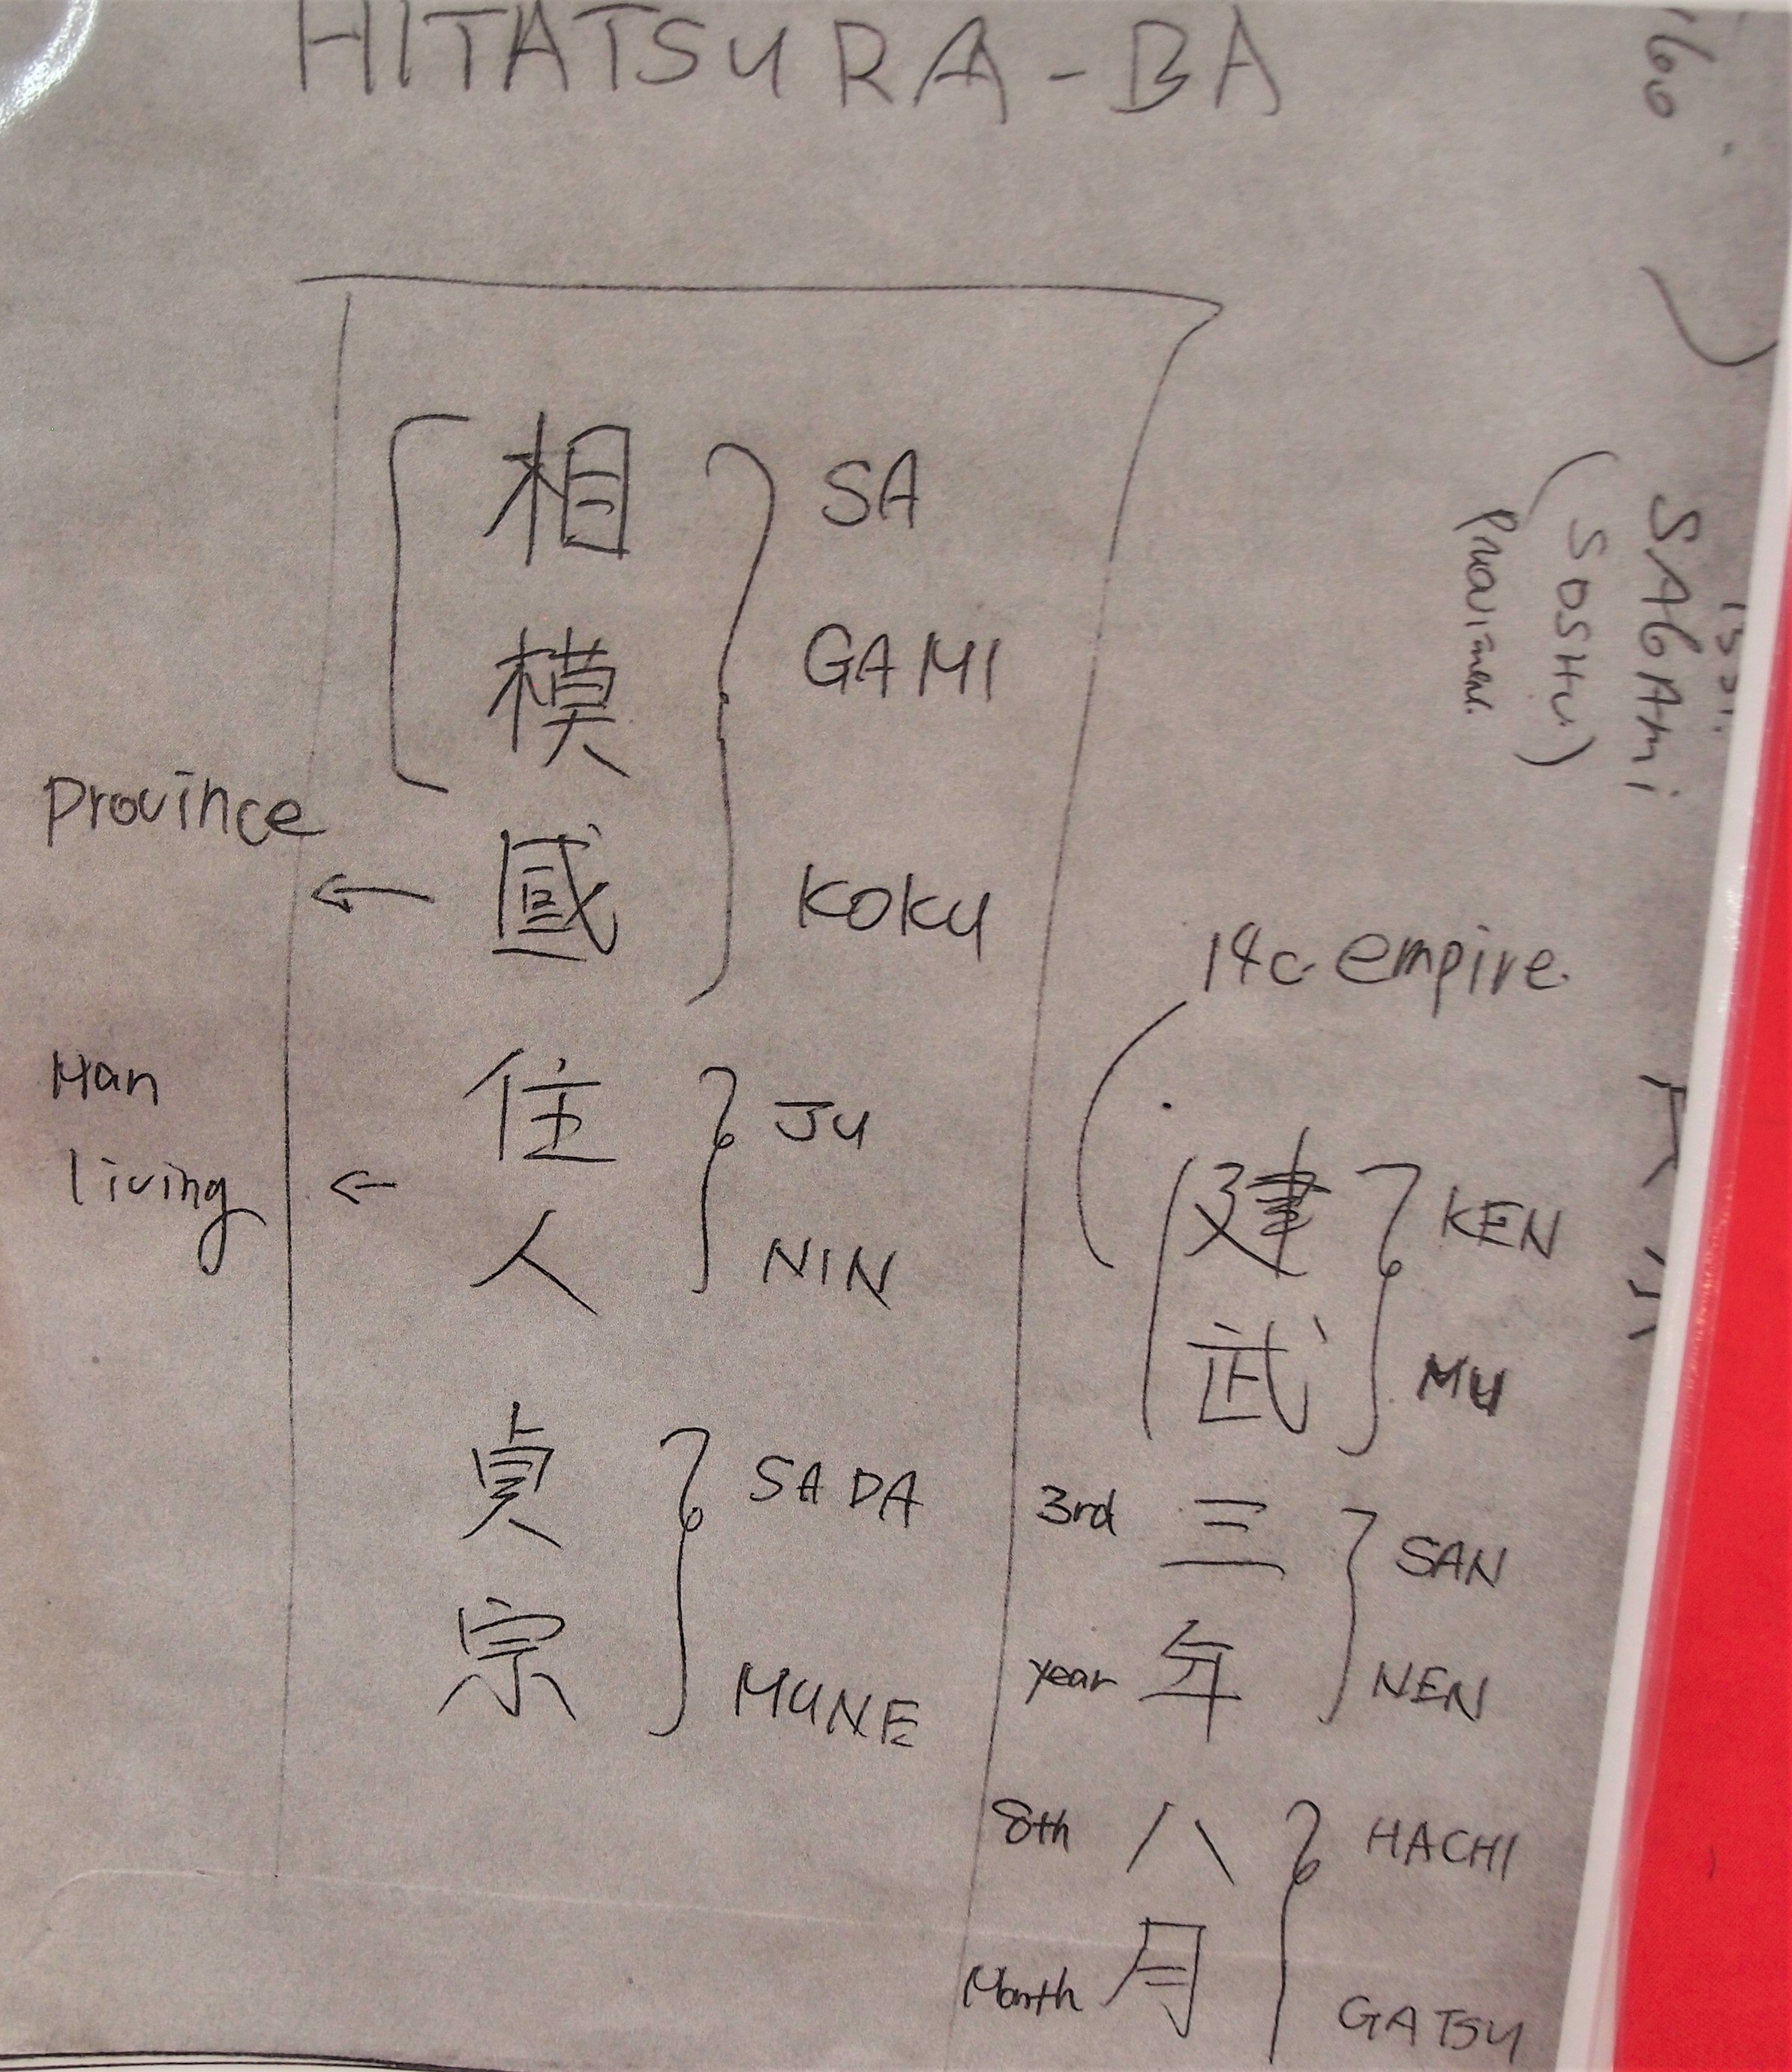 HITATSURA-BA
160
相 SA
模 GAMI
Province ← 國 KOKU
Man 住 JU
living ← 人 NIN
貞 SADA
宗 MUNE
SAGAMI
(SOSHU)
14c empire.
建 KEN
武 MU
3rd 三 SAN
year 年 NEN
8th 八 HACHI
Month 月 GATSU